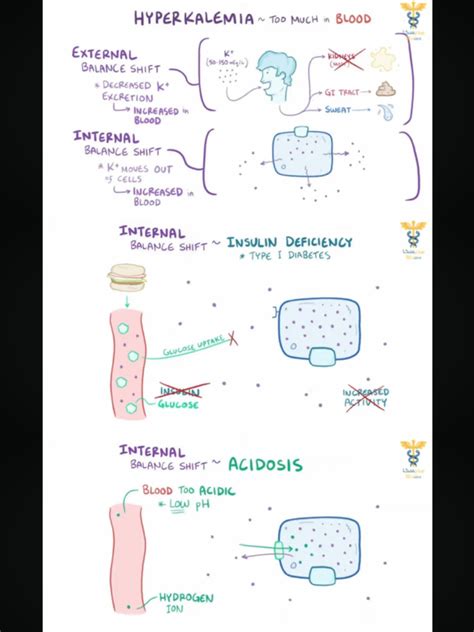 HYPERKALEMIA ~ TOO MUCH in BLOOD
EXTERNAL
BALANCE SHIFT
* DECREASED K⁺
EXCRETION
↳ INCREASED in
BLOOD
K⁺
KIDNEYS
GI TRACT
SWEAT
INTERNAL
BALANCE SHIFT
* K⁺ MOVES OUT
of CELLS
↳ INCREASED in
BLOOD
INTERNAL
BALANCE SHIFT ~ INSULIN DEFICIENCY
* TYPE I DIABETES
GLUCOSE UPTAKE X
INSULIN
GLUCOSE
INCREASED
ACTIVITY
INTERNAL
BALANCE SHIFT ~ ACIDOSIS
BLOOD TOO ACIDIC
* LOW pH
HYDROGEN
ION